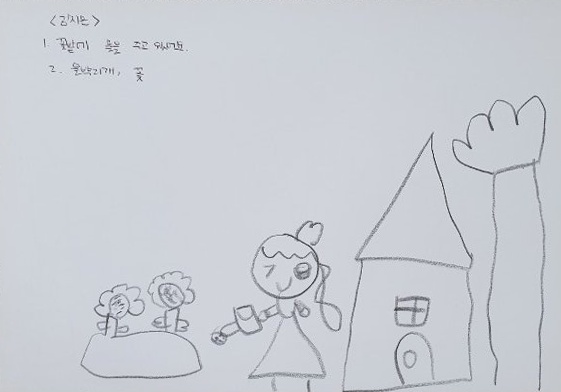 <김지은>
1. 꽃밭에 물을 주고 있어요.
2. 물뿌리개, 꽃